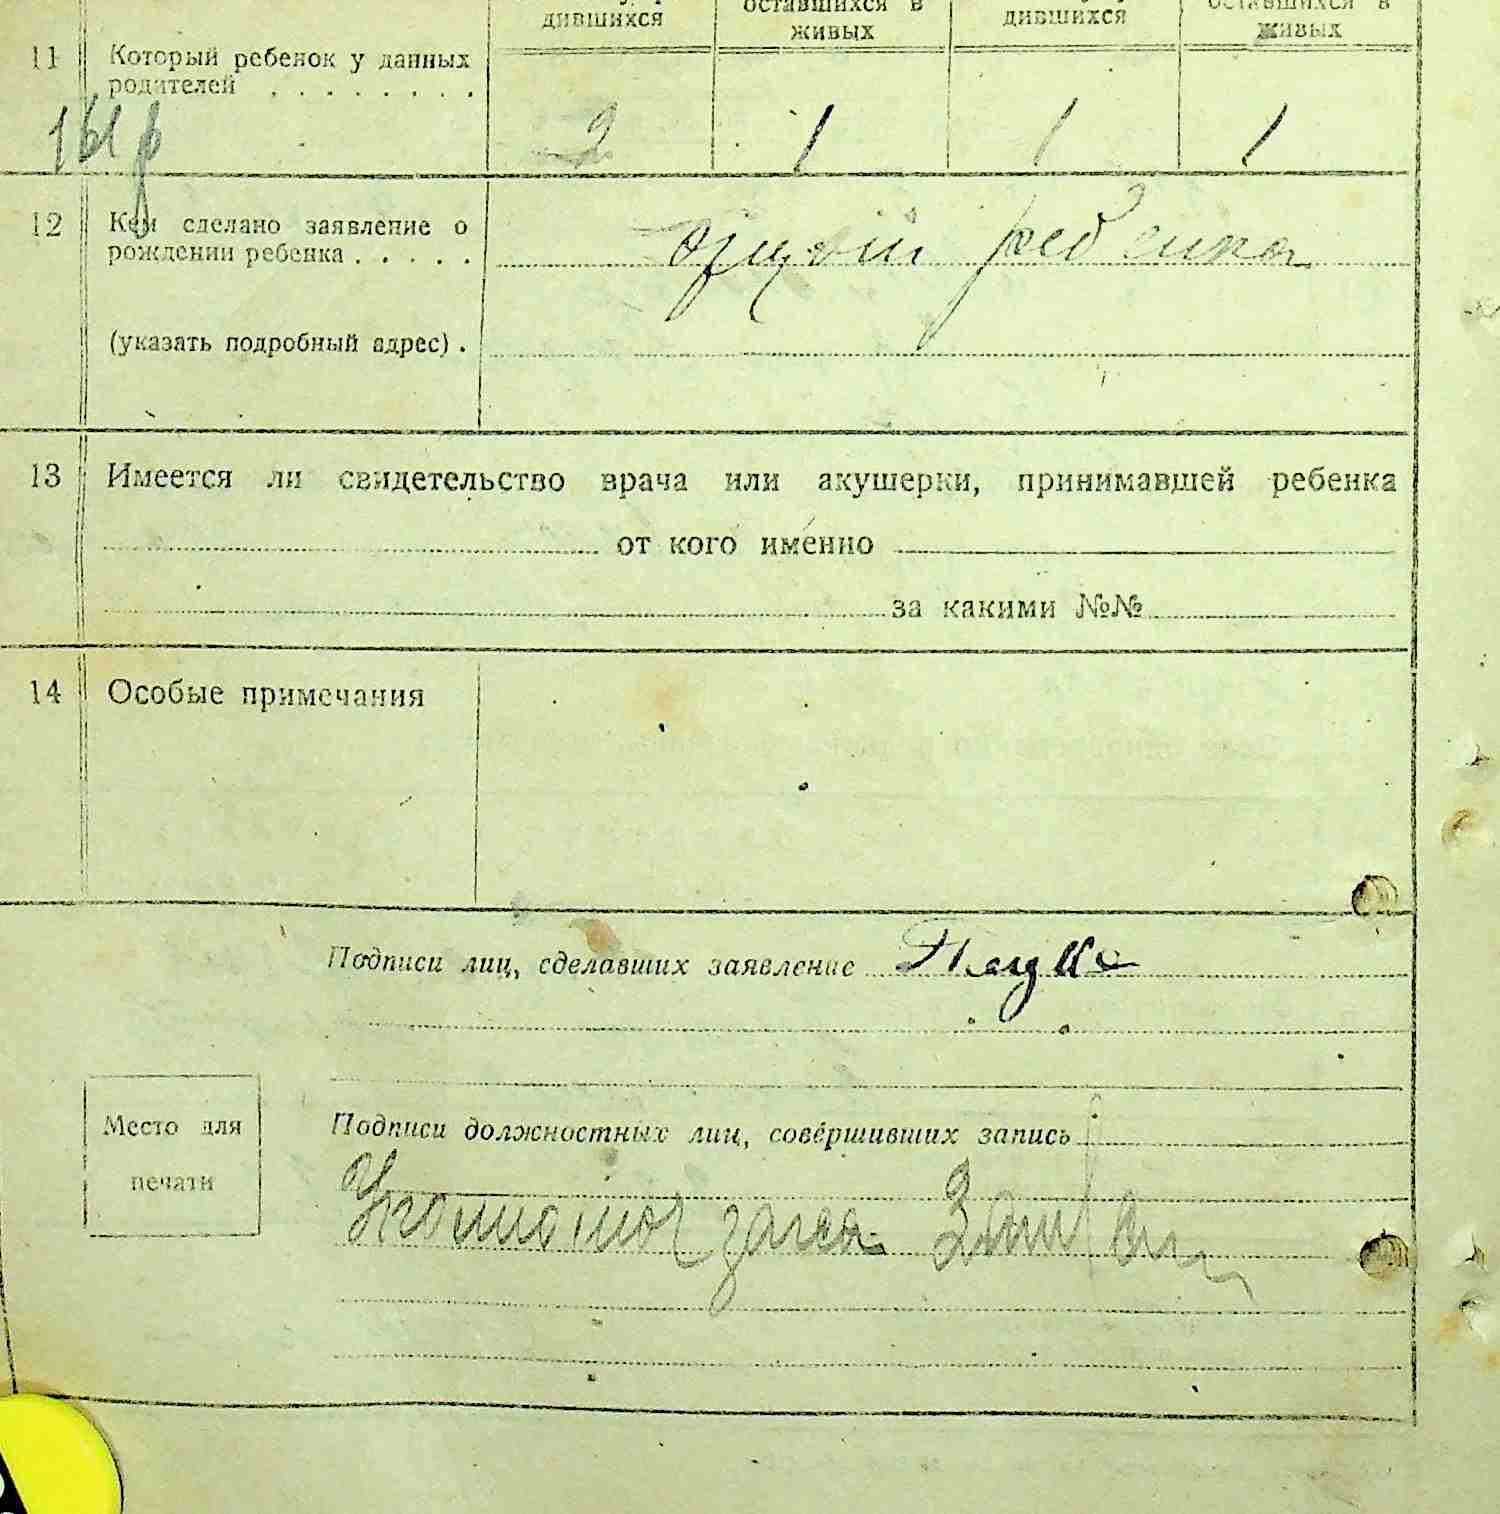 дившихся оставшихся в дившихся оставшихся в
живых живых
11 Который ребенок у данных
родителей . . . . . . . .
2 1 1 1
12 Кем сделано заявление о
рождении ребенка . . . . . ребенка
(указать подробный адрес) .
13 Имеется ли свидетельство врача или акушерки, принимавшей ребенка
от кого именно
за какими №№
14 Особые примечания
Подписи лиц, сделавших заявление
Место для
печати
Подписи должностных лиц, совершивших запись
загса